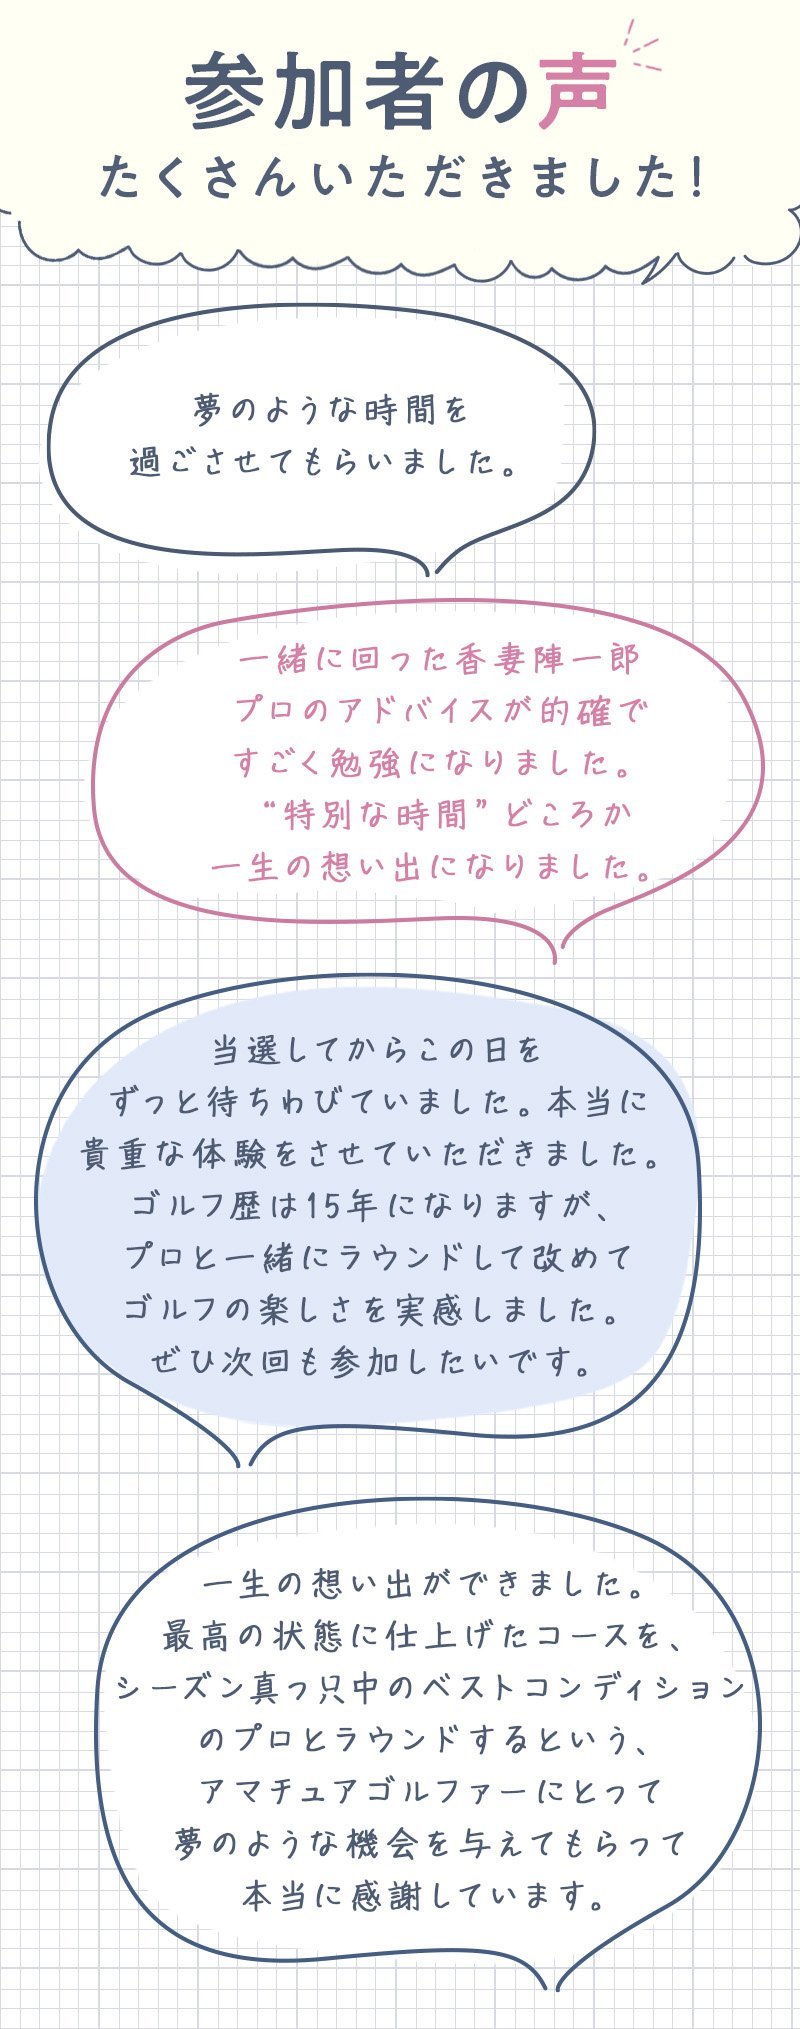 参加者の声
たくさんいただきました!
夢のような時間を
過ごさせてもらいました。
一緒に回った香妻陣一郎
プロのアドバイスが的確で
すごく勉強になりました。
“特別な時間”どころか
一生の想い出になりました。
当選してからこの日を
ずっと待ちわびていました。本当に
貴重な体験をさせていただきました。
ゴルフ歴は15年になりますが、
プロと一緒にラウンドして改めて
ゴルフの楽しさを実感しました。
ぜひ次回も参加したいです。
一生の想い出ができました。
最高の状態に仕上げたコースを、
シーズン真っ只中のベストコンディション
のプロとラウンドするという、
アマチュアゴルファーにとって
夢のような機会を与えてもらって
本当に感謝しています。